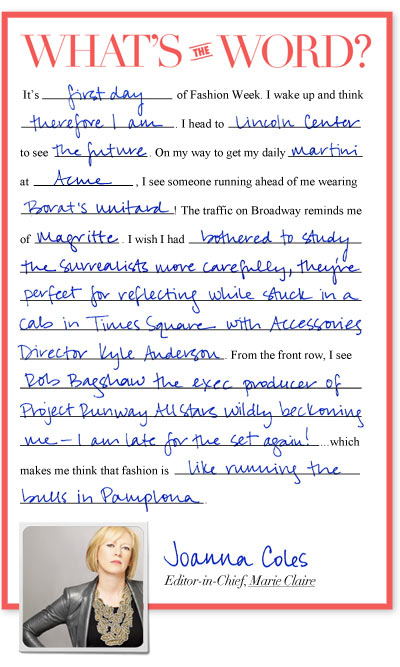 WHAT'S THE WORD?
It's first day of Fashion Week. I wake up and think
therefore I am. I head to Lincoln Center
to see the future. On my way to get my daily martini
at Acme, I see someone running ahead of me wearing
Borat's unitard! The traffic on Broadway reminds me
of Magritte. I wish I had bothered to study
the surrealists more carefully, they're
perfect for reflecting while stuck in a
cab in Times Square with Accessories
Director Kyle Anderson. From the front row, I see
Rob Bagshaw the exec producer of
Project Runway All Stars wildly beckoning
me – I am late for the set again! ...which
makes me think that fashion is like running the
bulls in Pamplona.
Joanna Coles
Editor-in-Chief, Marie Claire